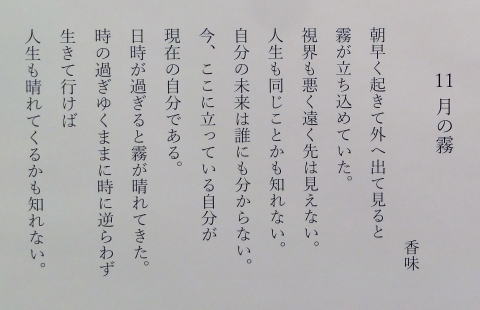 11月の霧
香味
朝早く起きて外へ出て見ると
霧が立ち込めていた。
視界も悪く遠く先は見えない。
人生も同じことかも知れない。
自分の未来は誰にも分からない。
今、ここに立っている自分が
現在の自分である。
日時が過ぎると霧が晴れてきた。
時の過ぎゆくままに時に逆らわず
生きて行けば
人生も晴れてくるかも知れない。